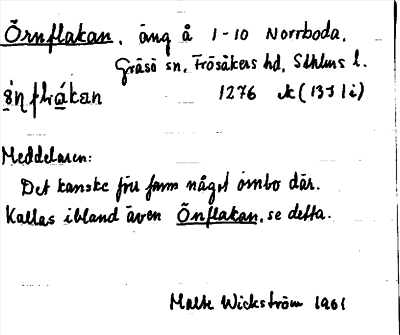 Örnflakan, äng å 1-10 Norrboda,
Gräsö sn, Frösåkers hd, Sthlms l.
1276 (13I1i)
Meddelaren:
Det kanske förr fanns något örnbo där.
Kallas ibland även Önflakan, se detta.
Malte Wickström 1961